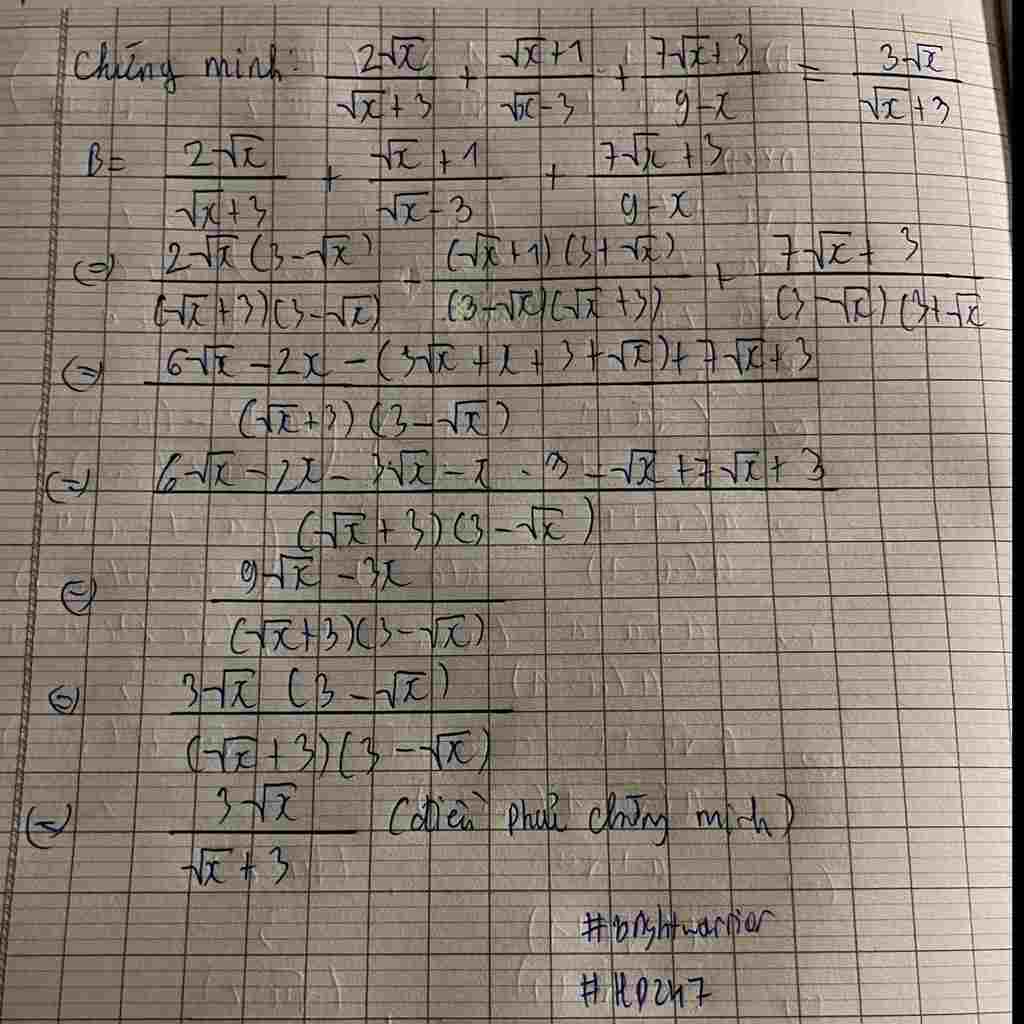 Chứng minh: 2√x/(√x+3) + (√x+1)/(√x-3) + (7√x+3)/(9-x) = 3√x/(√x+3)
B= 2√x/(√x+3) + (√x+1)/(√x-3) + (7√x+3)/(9-x)
(=) 2√x(3-√x)/(√x+3)(3-√x) - (√x+1)(3+√x)/(3-√x)(√x+3) + (7√x+3)/(3-√x)(3+√x
(=) (6√x-2x-(3√x+x+3+√x)+7√x+3)/(√x+3)(3-√x)
(=) (6√x-2x-3√x-x-3-√x+7√x+3)/(√x+3)(3-√x)
(=) (9√x-3x)/(√x+3)(3-√x)
(=) 3√x(3-√x)/(√x+3)(3-√x)
(=) 3√x/(√x+3) (điều phải chứng minh)
#brightwarrior
#HD247